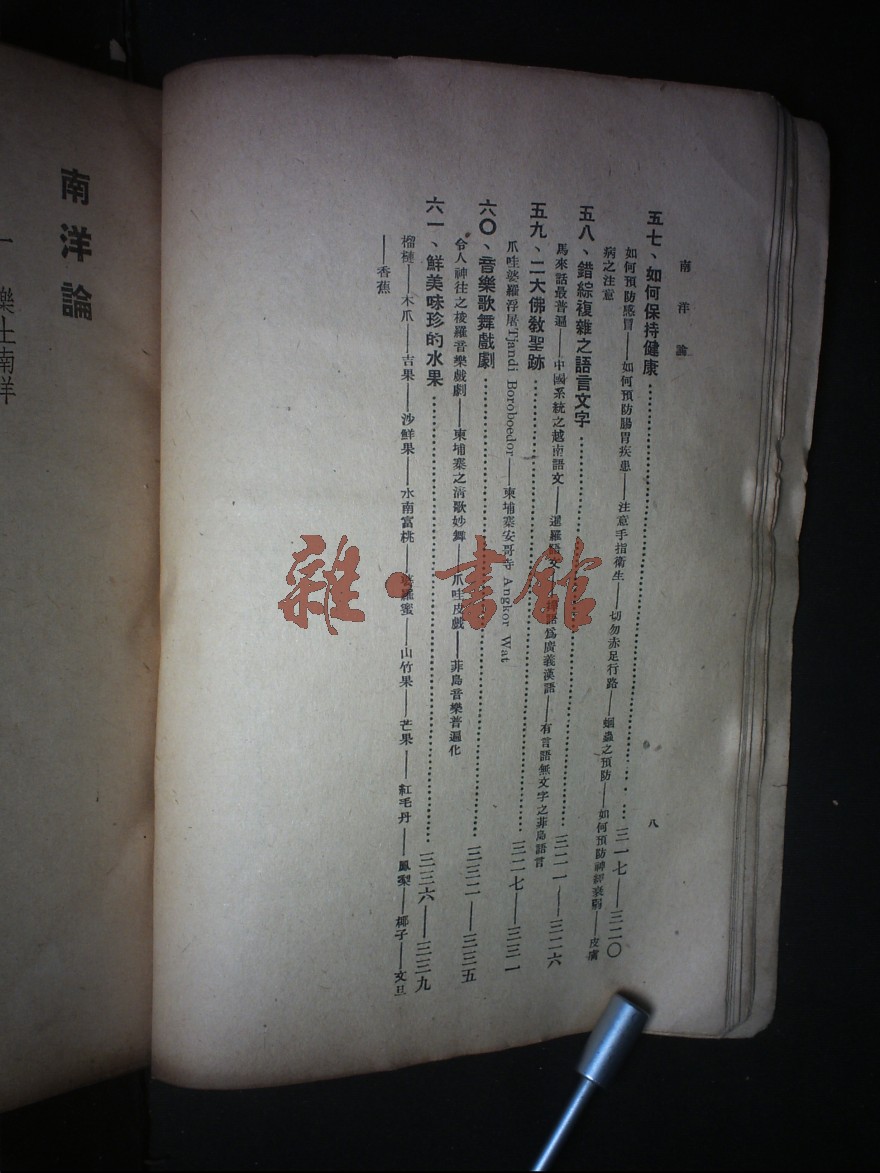 南洋論
八
五七、如何保持健康……三一七——三二〇
如何預防感冒——如何預防腸胃疾患——注意手指衛生——切勿赤足行路——蛔蟲之預防——如何預防神經衰弱——皮膚
病之注意
五八、錯綜複雜之語言文字……三二一——三二六
馬來話最普遍——中國系統之越南語文——暹羅語文——語為廣義漢語——有言語無文字之菲島語言
五九、二大佛教聖跡……三二七——三三一
爪哇婆羅浮屠Tjandi Boroboedor——柬埔寨安哥寺 Angkor Wat
六〇、音樂歌舞戲劇……三三二——三三五
令人神往之梭羅音樂戲劇——柬埔寨之清歌妙舞——爪哇皮戲——菲島音樂普遍化
六一、鮮美味珍的水果……三三六——三三九
榴槤——木瓜——吉果——沙鮮果——水南富桃——婆羅蜜——山竹果——芒果——紅毛丹——鳳梨——椰子——文旦
——香蕉
南洋論
一 樂土南洋
雜·書館